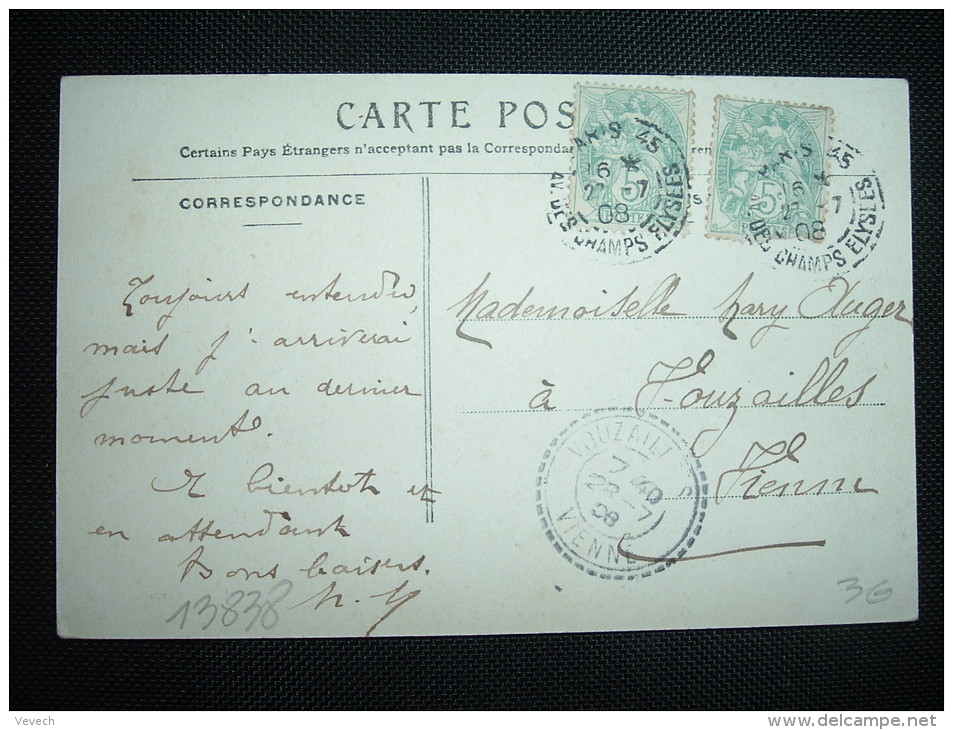 CARTE POS
Certains Pays Étrangers n'acceptant pas la Correspondan
CORRESPONDANCE
PARIS 45
6 *
27 -7
08
AV. DES CHAMPS ELYSEES
5
PARIS 45
6 *
27 -7
08
AV. DES CHAMPS ELYSEES
5
Toujours entendu,
mais j'arriverai
juste au dernier
moment.
A bientôt et
en attendant
Bons baisers.
Mademoiselle Mary Auger
à Vouzailles
Vienne
VOUZAILLES
7 40
28 -7
08
VIENNE
13838
3G
Vevech
www.delcampe.net